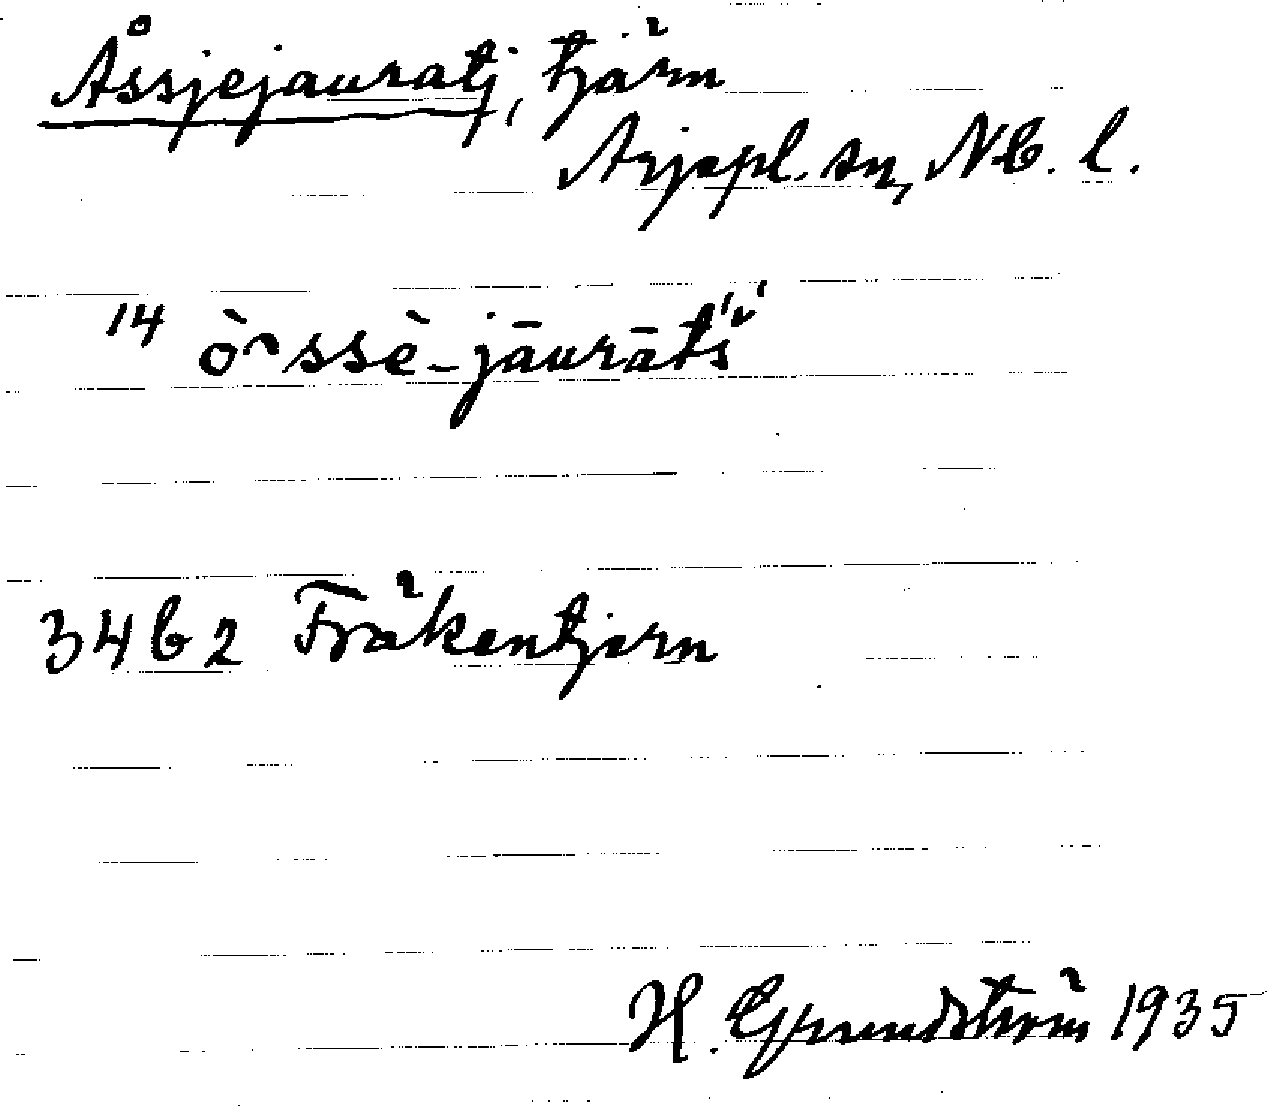 Åssjejauratj, tjärn
Arjepl. sn, Nb. l.
14 ò̀ssè-jāurāt́š́
34 b 2 Fräkentjern
H. Grundström 1935